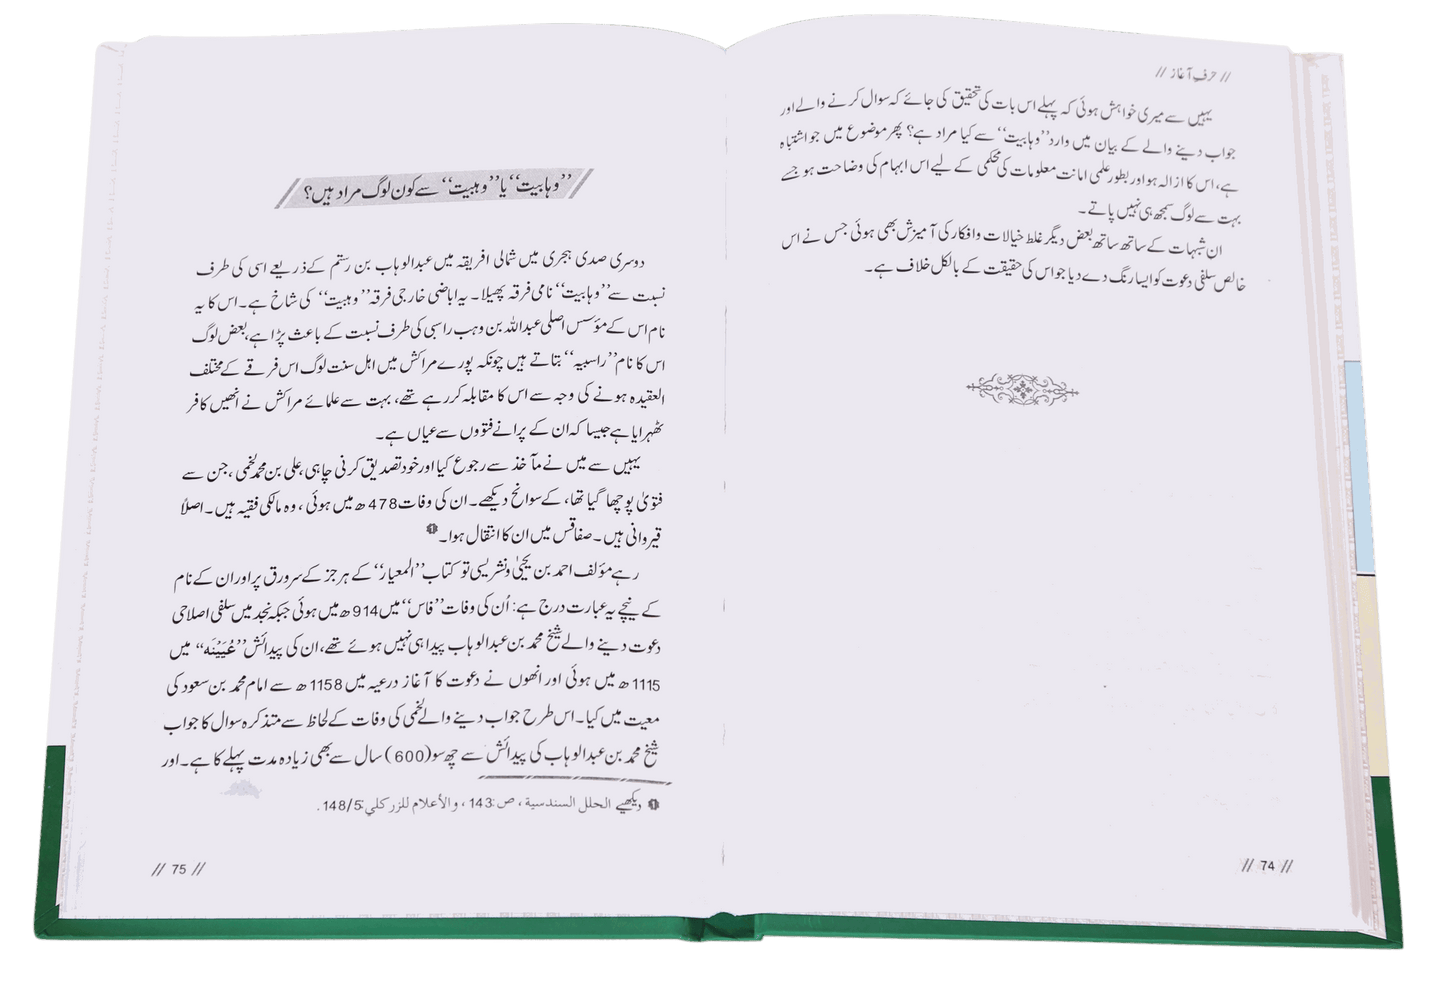 // حرفِ آغاز //
یہیں سے میری خواہش ہوئی کہ پہلے اس بات کی تحقیق کی جائے کہ سوال کرنے والے اور
جواب دینے والے کے بیان میں وارد ’’وہابیت‘‘ سے کیا مراد ہے؟ پھر موضوع میں جو اشتباہ
ہے، اس کا ازالہ ہو اور بطور علمی امانت معلومات کی محکمی کے لیے اس ابہام کی وضاحت ہو جسے
بہت سے لوگ سمجھ ہی نہیں پاتے۔
ان شبہات کے ساتھ ساتھ بعض دیگر غلط خیالات وافکار کی آمیزش بھی ہوئی جس نے اس
خالص سلفی دعوت کو ایسا رنگ دے دیا جو اس کی حقیقت کے بالکل خلاف ہے۔
// 74 //
’’وہابیت‘‘ یا ’’وہبیت‘‘ سے کون لوگ مراد ہیں؟
دوسری صدی ہجری میں شمالی افریقہ میں عبدالوہاب بن رستم کے ذریعے اسی کی طرف
نسبت سے ’’وہابیت‘‘ نامی فرقہ پھیلا۔ یہ اباضی خارجی فرقہ ’’وہبیت‘‘ کی شاخ ہے۔ اس کا یہ
نام اس کے مؤسس اصلی عبداللہ بن وہب راسبی کی طرف نسبت کے باعث پڑا ہے، بعض لوگ
اس کا نام ’’راسبیہ‘‘ بتاتے ہیں چونکہ پورے مراکش میں اہل سنت لوگ اس فرقے کے مختلف
العقیدہ ہونے کی وجہ سے اس کا مقابلہ کر رہے تھے، بہت سے علمائے مراکش نے انھیں کافر
ٹھہرایا ہے جیسا کہ ان کے پرانے فتووں سے عیاں ہے۔
یہیں سے میں نے مآخذ سے رجوع کیا اور خود تصدیق کرنی چاہی، علی بن محمد لخمی، جن سے
فتویٰ پوچھا گیا تھا، کے سوانح دیکھے۔ ان کی وفات 478ھ میں ہوئی، وہ مالکی فقیہ ہیں۔ اصلاً
قیروانی ہیں۔ صفاقس میں ان کا انتقال ہوا۔ ❶
رہے مؤلف احمد بن یحییٰ ونشریسی تو کتاب ’’المعیار‘‘ کے ہر جز کے سرورق پر اور ان کے نام
کے نیچے یہ عبارت درج ہے: اُن کی وفات ’’فاس‘‘ میں 914ھ میں ہوئی جبکہ نجد میں سلفی اصلاحی
دعوت دینے والے شیخ محمد بن عبدالوہاب پیدا ہی نہیں ہوئے تھے، ان کی پیدائش ’’عُیَیْنَہ‘‘ میں
1115ھ میں ہوئی اور انھوں نے دعوت کا آغاز درعیہ میں 1158ھ سے امام محمد بن سعود کی
معیت میں کیا۔ اس طرح جواب دینے والے لخمی کی وفات کے لحاظ سے متذکرہ سوال کا جواب
شیخ محمد بن عبدالوہاب کی پیدائش سے چھ سو (600) سال سے بھی زیادہ مدت پہلے کا ہے۔ اور
❶ دیکھیے الحلل السندسية، ص:143، والأعلام للزركلي:148/5.
// 75 //